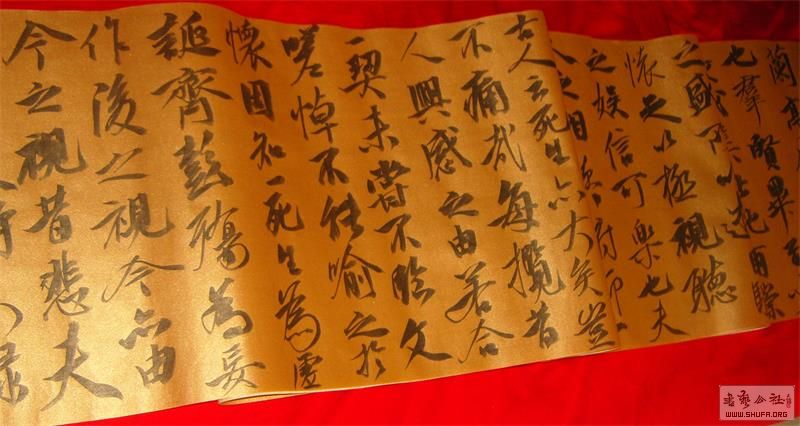 蘭
也羣賢畢至
之盛所以遊目騁
懷足以極視聽
之娛信可樂也夫
古人云死生亦大矣豈
不痛哉每攬昔
人興感之由若合
一契未嘗不臨文
嗟悼不能喻之於
懷固知一死生為虛
誕齊彭殤為妄
作後之視今亦由
今之視昔悲夫
錄
書法公社
WWW.SHUFA.ORG